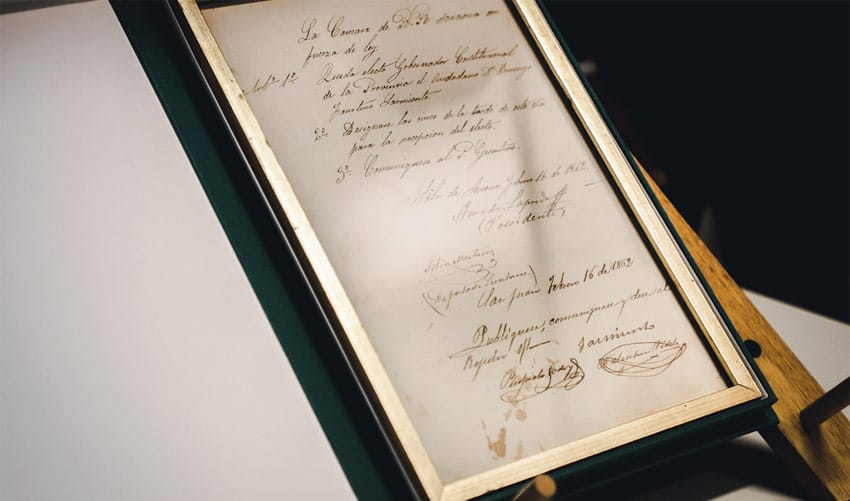 La Camara de R.R. sanciona con
fuerza de ley
Art.º 1º Queda electo Gobernador Constitucional
de la Provincia el ciudadano Dn. Domingo
Faustino Sarmiento.
2º Designase las cinco de la tarde de este dia
para la recepcion del electo.
3º Comuniquese al P. Ejecutivo.
Sala de Sesiones Febrero 16 de 1862
(Presidente)
(Diputado Secretario)
San Juan Febrero 16 de 1862
Publiquese, comuniquese y dese al
Registro Of.
Sarmiento